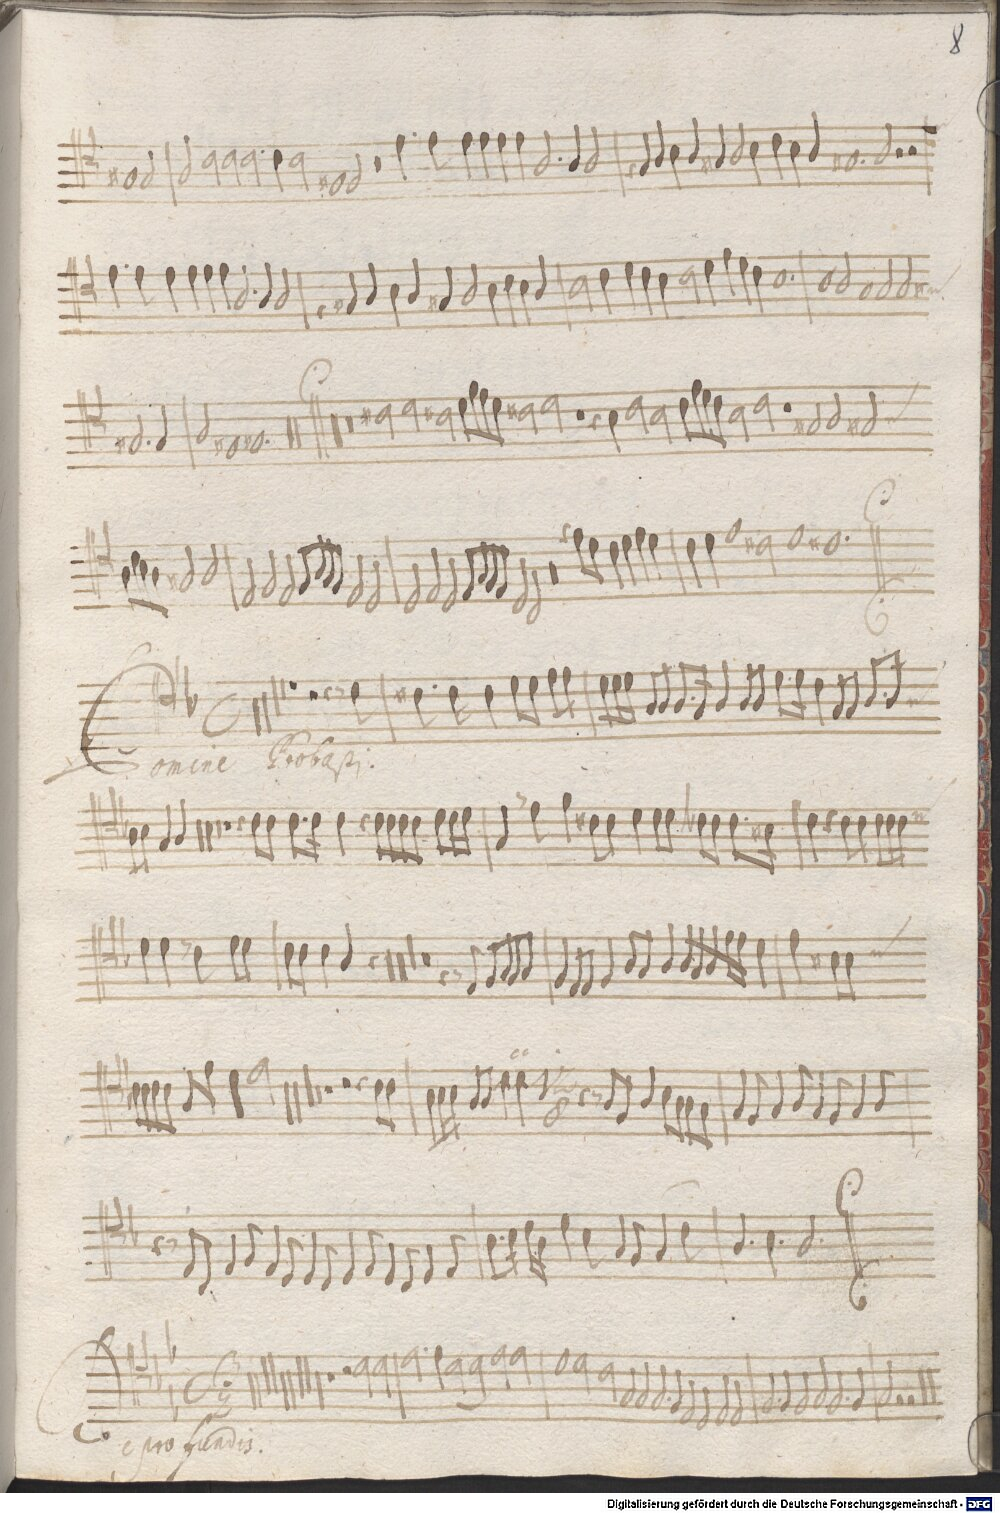 8
Domine Probasti.
De profundis.
Digitalisierung gefördert durch die Deutsche Forschungsgemeinschaft - DFG